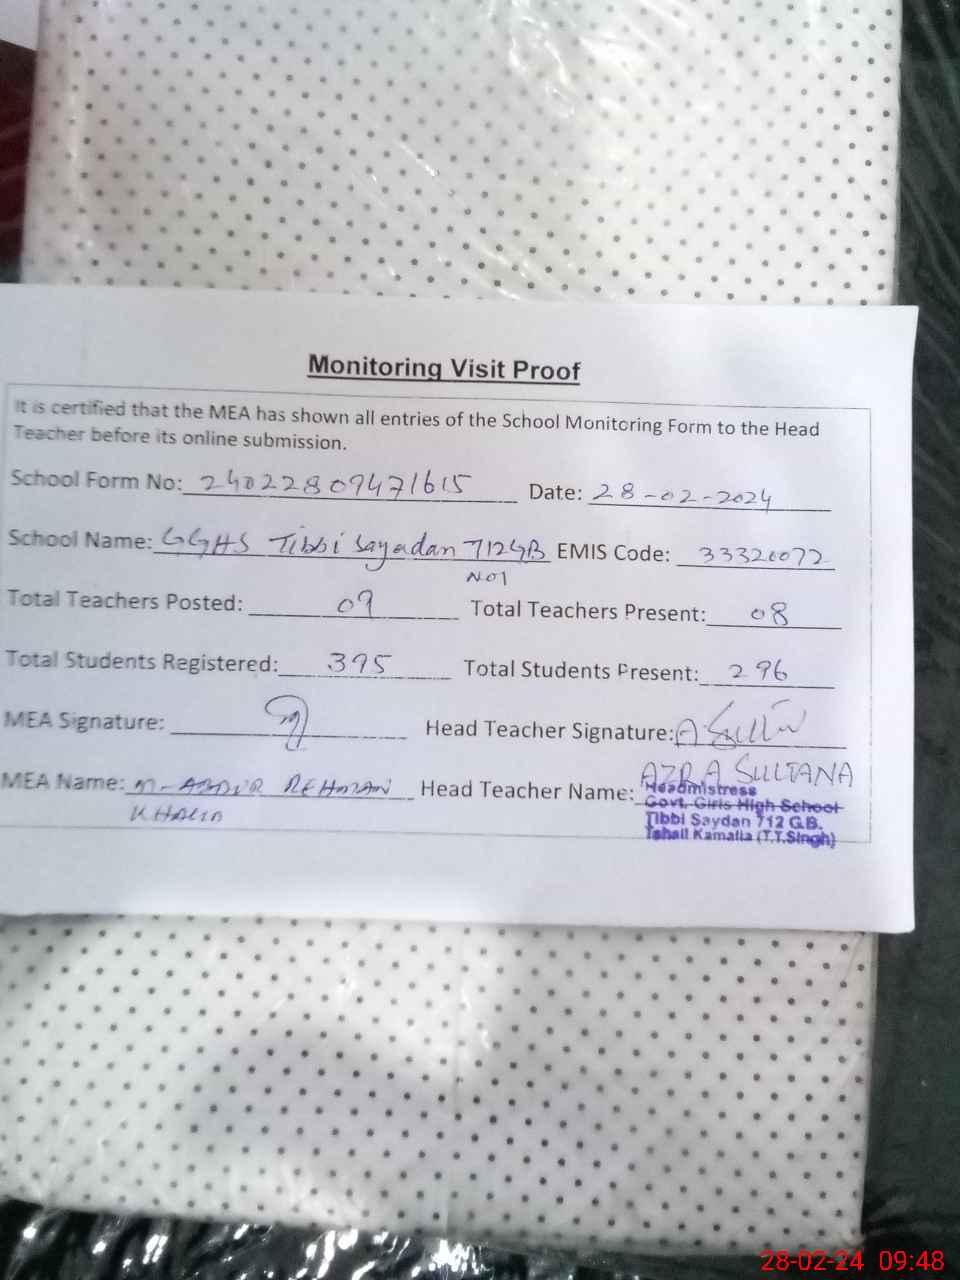 Monitoring Visit Proof
It is certified that the MEA has shown all entries of the School Monitoring Form to the Head
Teacher before its online submission.
School Form No: 24022809471615 Date: 28-02-2024
School Name: GGHS Tibbi Sayadan 712GB EMIS Code: 33320072
NO1
Total Teachers Posted: 09 Total Teachers Present: 08
Total Students Registered: 395 Total Students Present: 296
MEA Signature: Head Teacher Signature: A Sultan
MEA Name: M-ABDUR REHMAN Head Teacher Name: AZRA SULTANA
KHALID
Headmistress
Govt. Girls High School
Tibbi Saydan 712 G.B.
Tshail Kamalia (T.T.Singh)
28-02-24 09:48